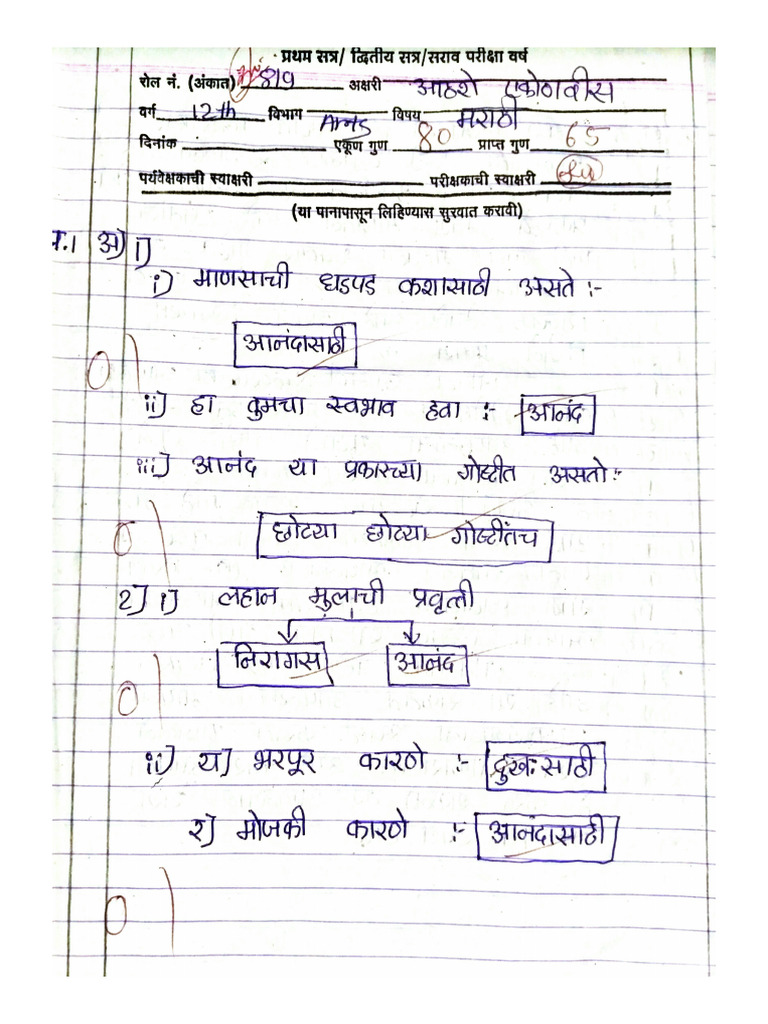 प्रथम सत्र/ द्वितीय सत्र/सराव परीक्षा वर्ष
रोल नं. (अंकात) 819 अक्षरी आठशे एकोणवीस
वर्ग 12th विभाग Arts विषय मराठी
दिनांक एकूण गुण 80 प्राप्त गुण 65
पर्यवेक्षकाची स्वाक्षरी परीक्षकाची स्वाक्षरी
(या पानापासून लिहिण्यास सुरवात करावी)
प्र.1 अ) 1)
i) माणसाची धडपड कशासाठी असते :-
आनंदासाठी
ii) हा तुमचा स्वभाव हवा :- आनंद
iii) आनंद या प्रकारच्या गोष्टीत असतो:-
छोट्या छोट्या गोष्टींतच
2) i) लहान मुलाची प्रवृत्ती
निरागस आनंद
ii) य) भरपूर कारणे :- दुखःसाठी
र) मोजकी कारणे :- आनंदासाठी